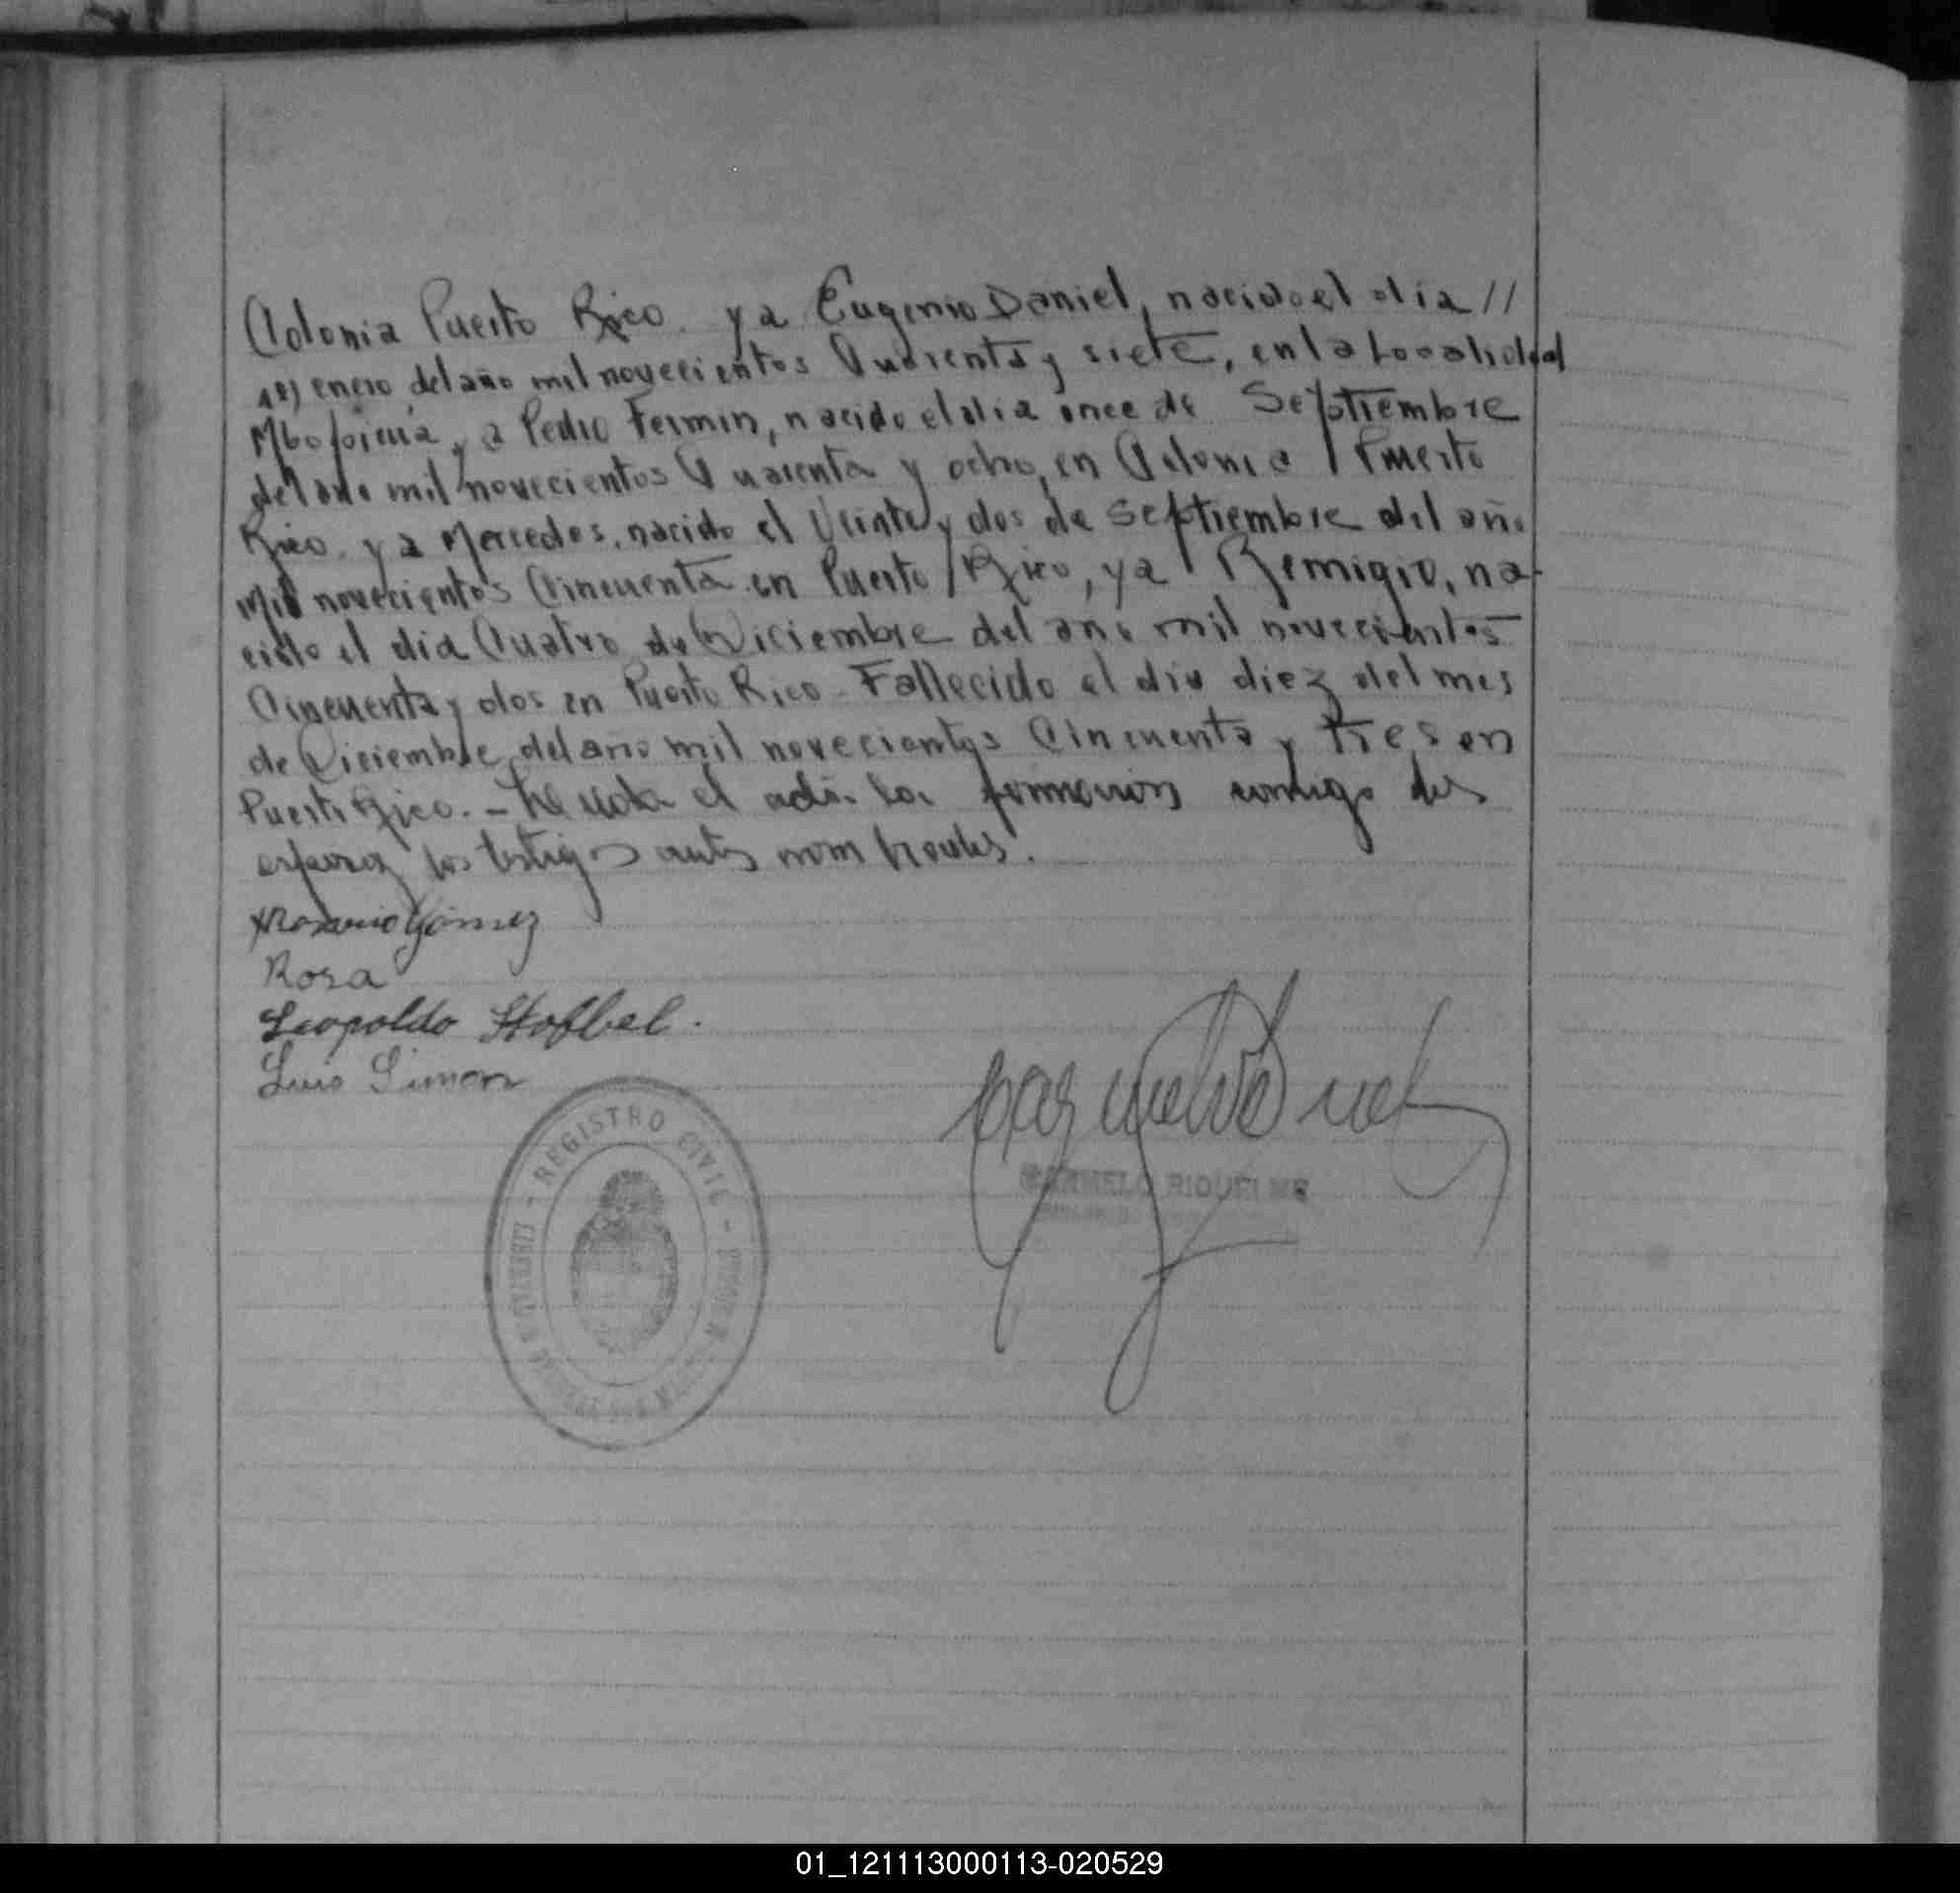 Colonia Puerto Rico. y a Eugenio Daniel, nacido el dia //
1º) enero, del año mil novecientos Cuarenta y siete, en la Localidad
Mbopicuá, y a Pedro Fermin, nacido el dia once de Septiembre
del año mil novecientos Cuarenta y ocho, en Colonia Puerto
Rico. y a Mercedes, nacido el Veinte y dos de Septiembre del año
Mil novecientos Cincuenta en Puerto Rico, y a Remigio, na-
cido el dia Cuatro de Diciembre del año mil novecientos
Cincuenta y dos en Puerto Rico - Fallecido el dia diez del mes
de Diciembre, del año mil novecientos Cincuenta y tres en
Puerto Rico. - el acta la conmigo
los testigos antes nombrados.
Gómez
Rosa
Leopoldo Stoflbel.
Luis Simon
REGISTRO CIVIL
CARMELO RIQUELME
01_121113000113-020529